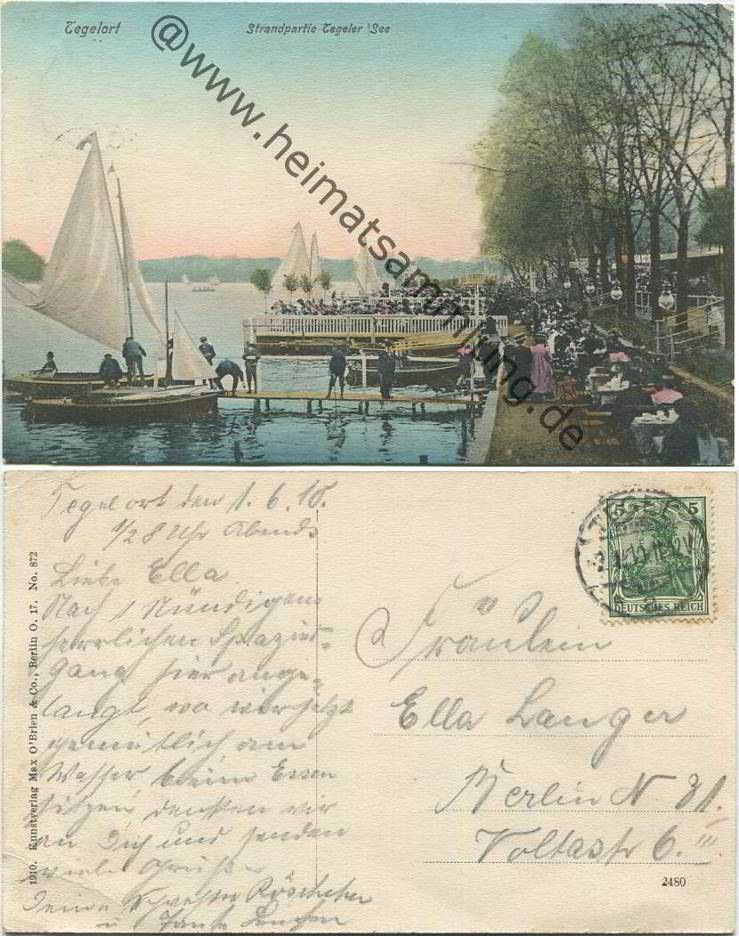 Tegelort
Strandpartie Tegeler See
@www.heimatsammlung.de
Tegelort den 1.6.10.
1/2 8 Uhr Abends
Liebe Ella.
Nach 1 stündigem
herrlichen Spazier=
gang hier ange=
langt, wo wir jetzt
gemütlich am
Wasser beim Essen
sitzen, denken wir
an Dich und senden
viele Grüße
Deine Schwester Röschen
u Tante
1910. Kunstverlag Max O'Brien & Co., Berlin O. 17. No. 872
5 5
DEUTSCHES REICH
Fräulein
Ella Langer
Berlin N 31.
Voltastr 6. III.
2480